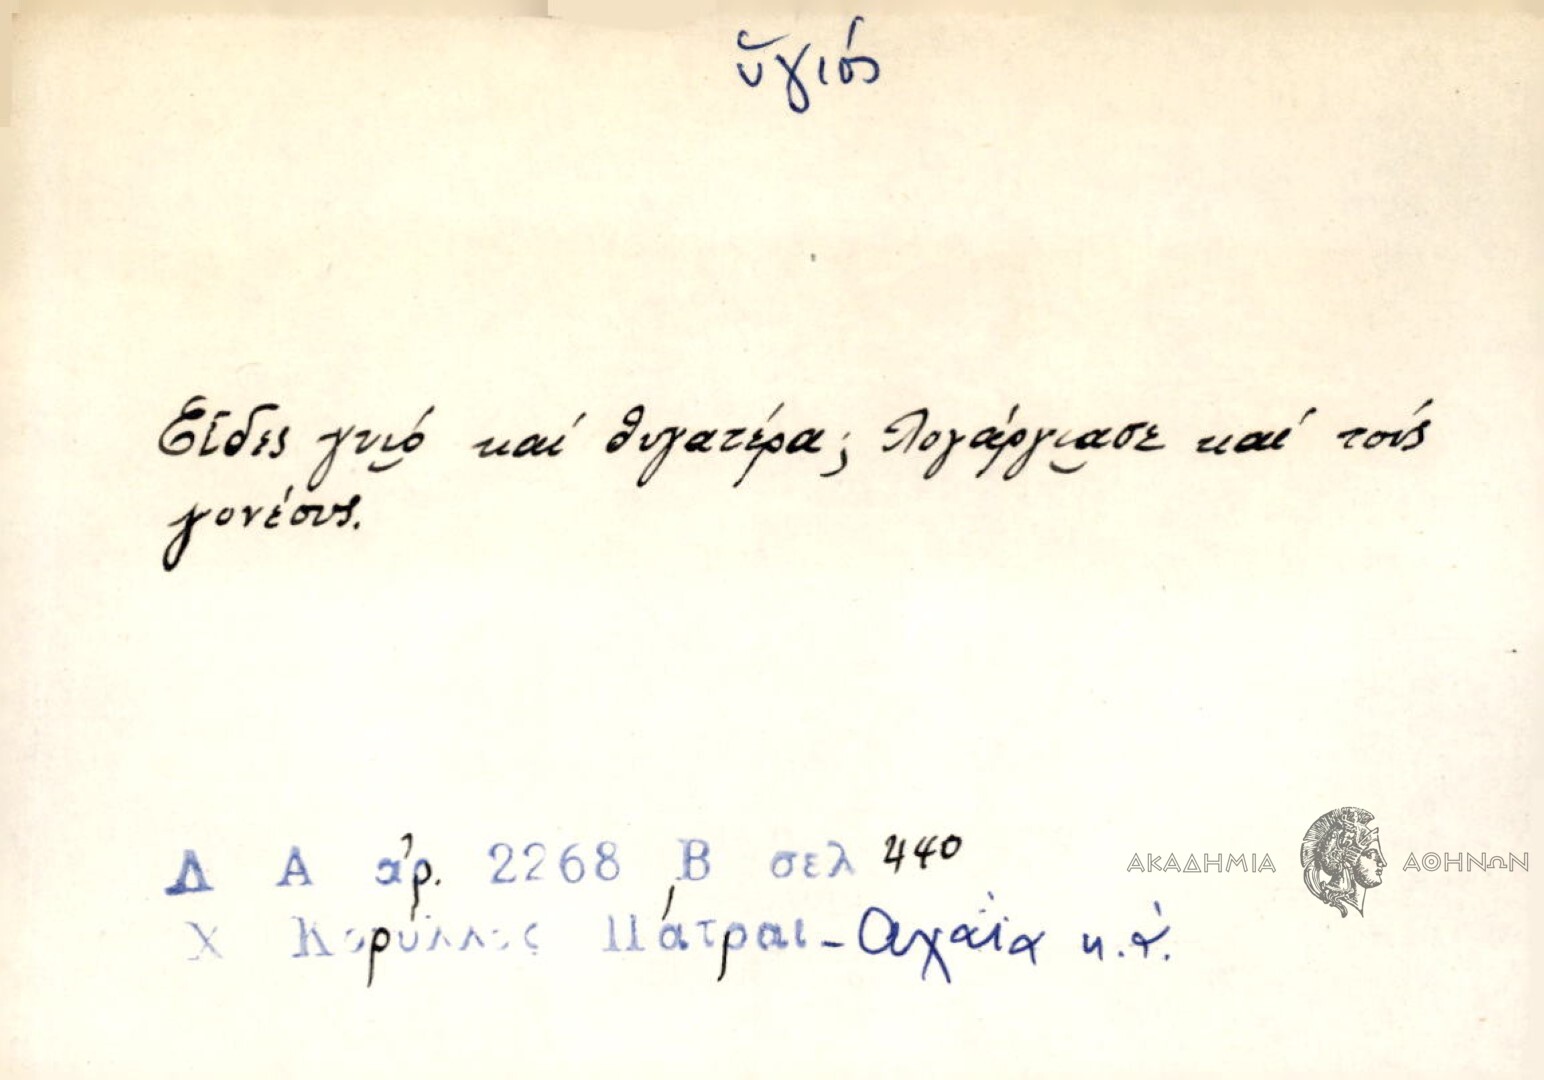 ὑγιός
Εἶδες γυιό καί θυγατέρα; Λογάργιασε καί τούς
γονέους.
Δ Α ἀρ. 2268 Β σελ 440
Χ Κορύλλος Πάτραι - Αχαΐα κ.ἀ.
ΑΚΑΔΗΜΙΑ ΑΘΗΝΩΝ